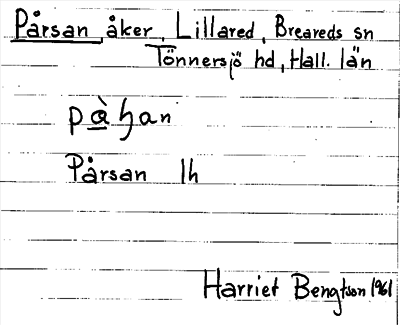 Pårsan, åker, Lillared, Breareds sn
Tönnersjö hd, Hall. län
pàꜧan
Pårsan lh
Harriet Bengtson 1961